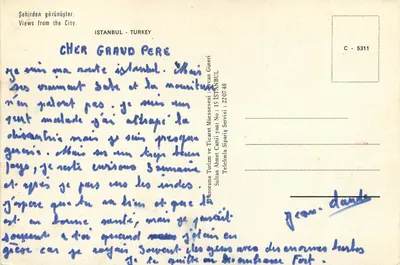 Şehirden görünüşler
Views from the City.
ISTANBUL - TURKEY
C - 5311
CHER GRAND PERE
je suis ma route istanbul. Mais
ses vraiment sale et la nourriture
n'en parlont pas. je suis un
peut malade j'ai attrapé la
mais je suis presque
guerie. Mais sur un très beau
pays, je reste environs 3 semaine
et après je pars vers les indes.
j'espere que tu va bien et que tu
est en bonne santé, mais je pensait
souvent a toi quand j'etais en
grèce car je voyais souvent les gens avec des enormes
je te quitte en t'embrassant fort.
Jean-Claude
Turizm ve Ticaret Müessesesi
Sultan Ahmet Camii yanı No : 15 ISTANBUL
Telefonla Sipariş Servisi : 22 07 48